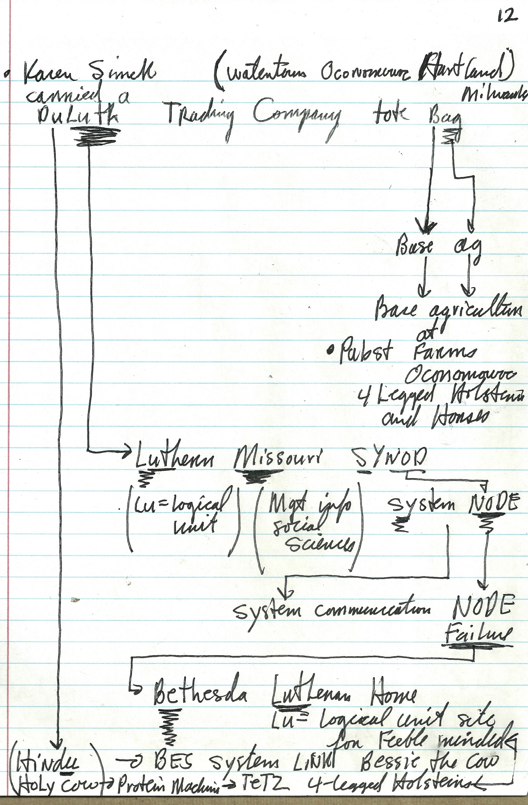 12
• Karen Simek (Watertown Oconomowoc Hartland)
carried a Milwauke
DuLuth Trading Company tote Bag
Base ag
Base agriculture
at
• Pabst Farms
Oconomowoc
4 Legged Holsteins
and Horses
Lutheran Missouri SYNOD
(Lu = logical unit) (Mgt info social sciences) System NODE
System communication NODE
Failure
Bethesda Lutheran Home
Lu = Logical unit site
for Feeble minded
(Hindu → BES system LINK Bessie the Cow
Holy Cow) → Protein Machine → TeTz 4-legged Holsteins